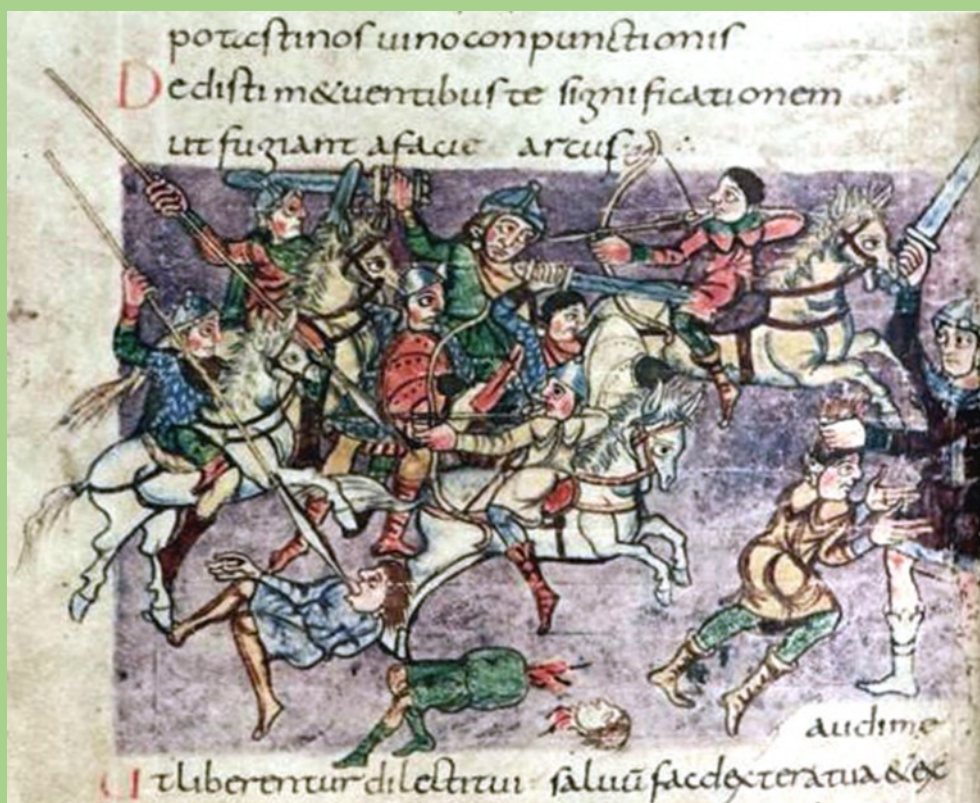 potasti nos uino conpunctionis
Dedisti m&uentibus te significationem
ut fugiant a facie arcus
audi me
Ut liberentur dilecti tui saluū fac dextera tua & ex